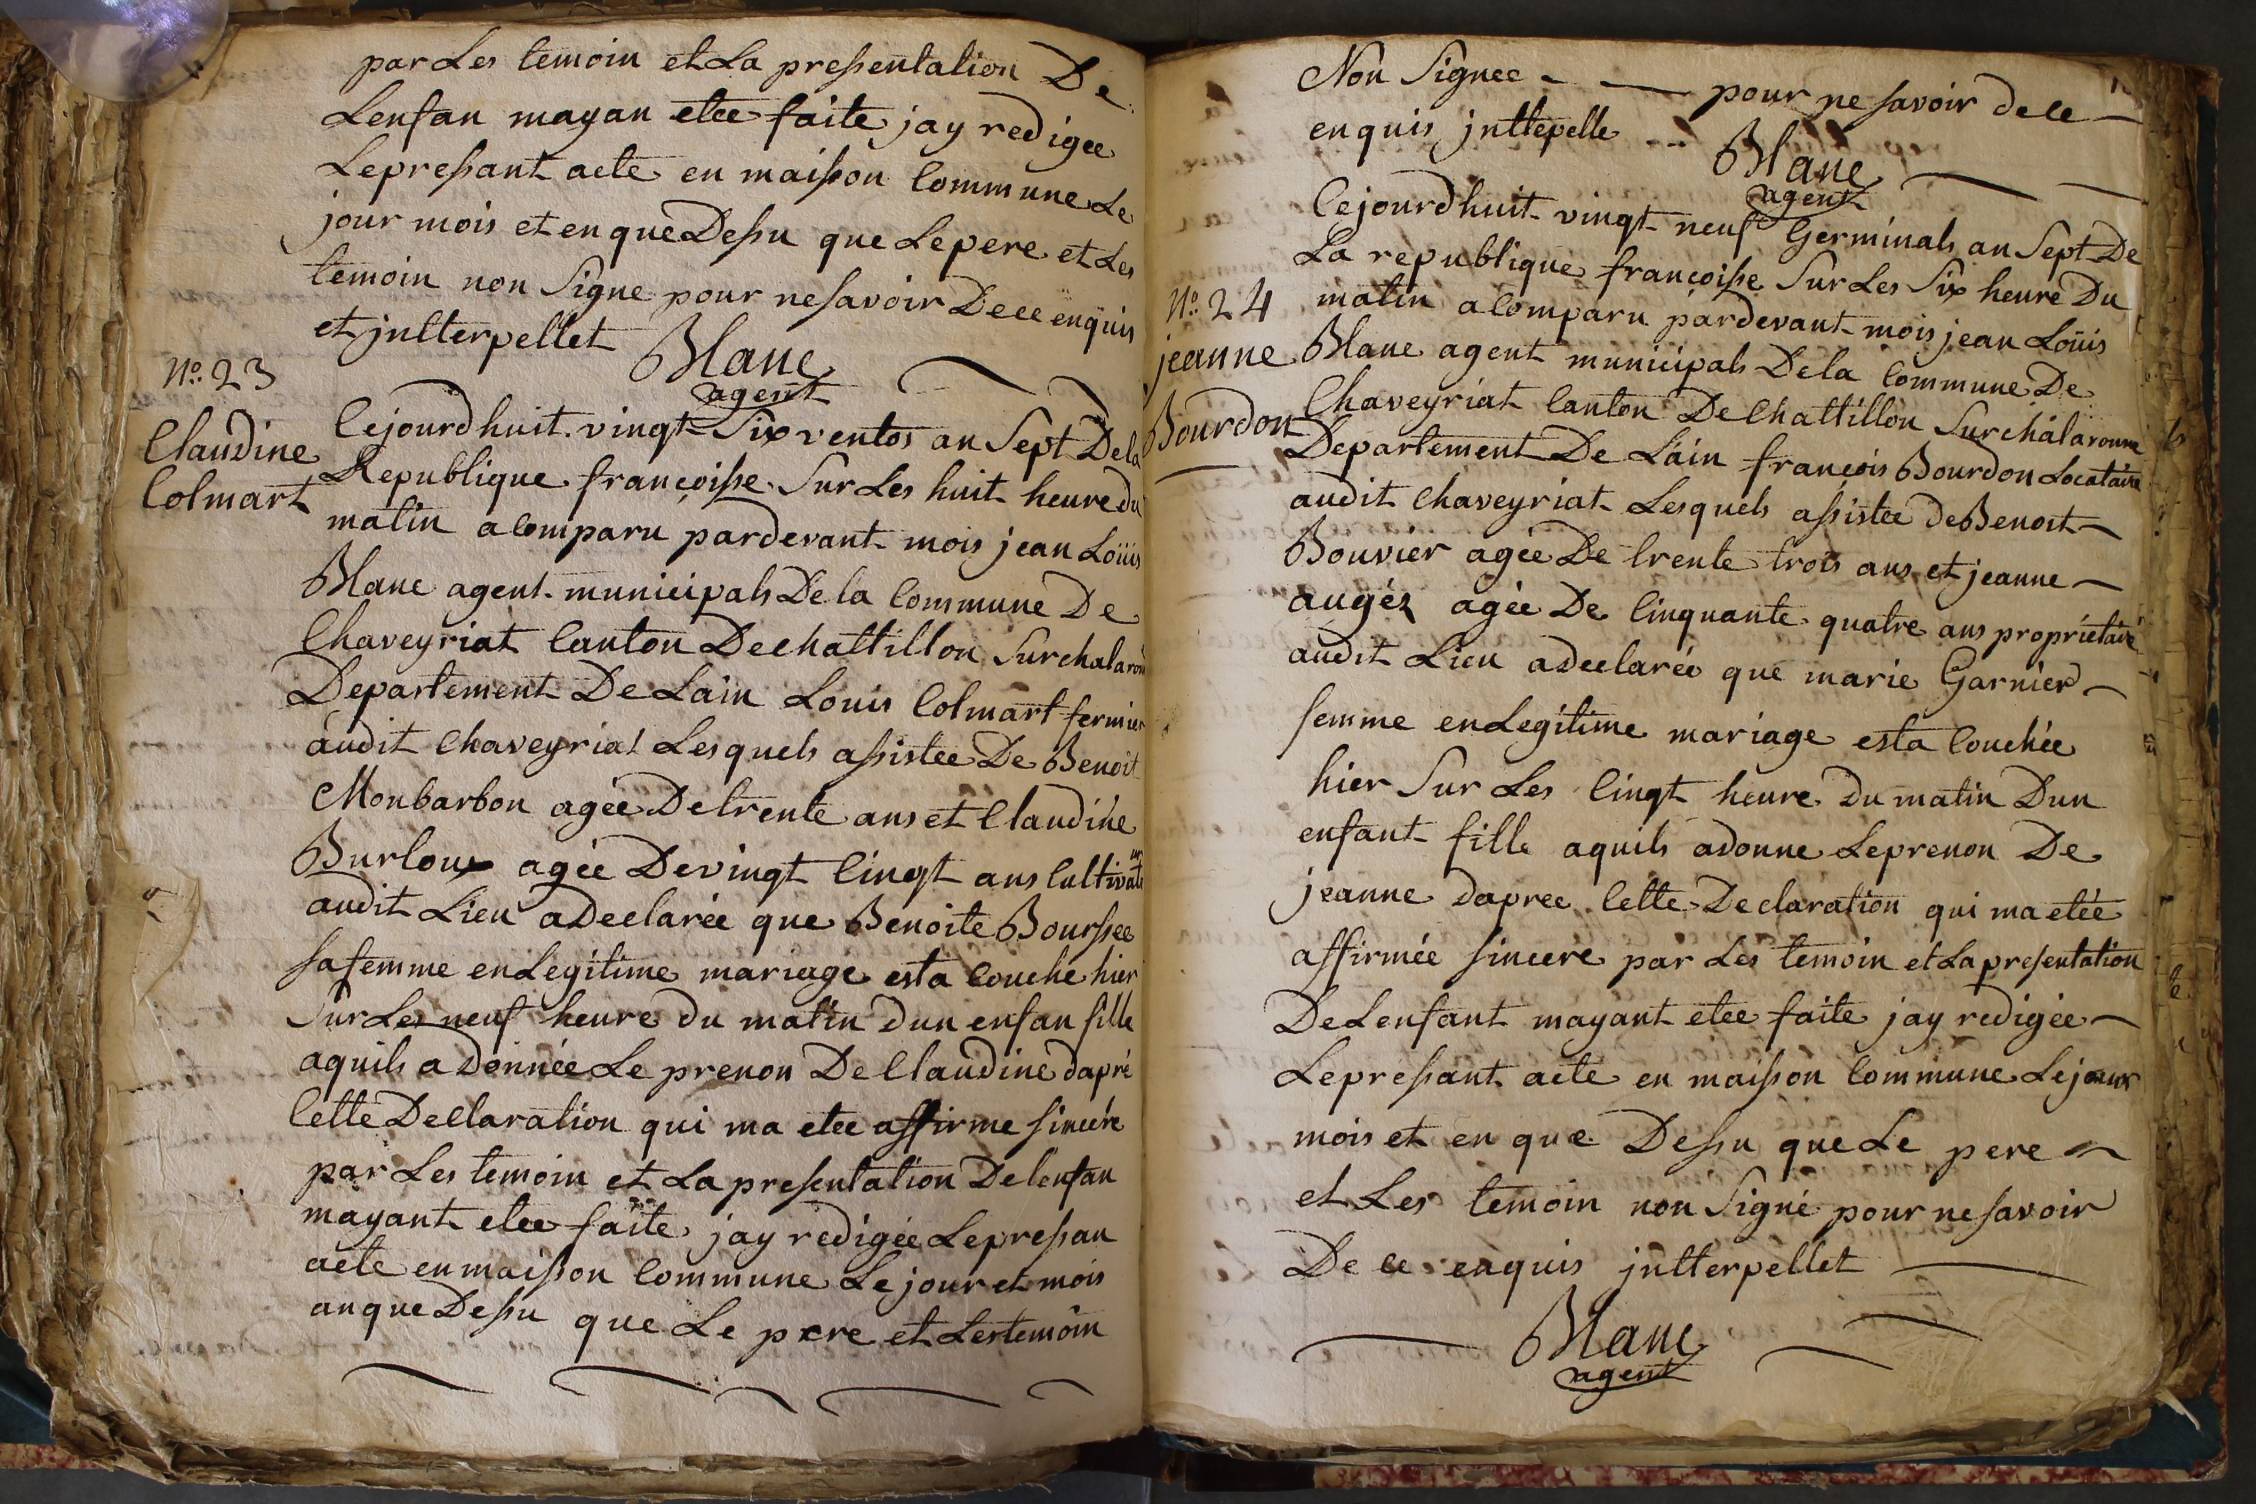 par Les temoin et La pressentation De
Lenfan mayan etee faite jay redigee
Lepressant acte en maisson Commune Le
jour mois et en que Dessu que Lepere et Les
temoin non Signe pour nesavoir Dece enquis
et jntterpellet Blanc
agent
No. 23
Claudine
Colmart
Cejourdhuit vingt Six ventos an Sept Dela
Republique françoisse Sur Les huit heure du
matin a Comparu pardevant mois jean Loüis
Blanc agent municipals De la Commune De
Chaveyriat Canton De chattillon Surchalaron
Departement De Lain Louis Colmart fermier
audit Chaveyriat Lesquels assistee De Benoit
Monbarbon agée De trente ans et Claudine
Burloux agée De vingt Cinqt ans Cultivateur
audit Lieu a Declarée que Benoite Boursee
safemme en Legitime mariage esta Couche hier
Sur Les neuf heure du matin dun enfan fille
aquils a donnée Le prenon De Claudine dapré
Cette Declaration qui ma etee affirme sincére
par Les temoin et La presentation De lenfan
mayant etee faite jay redigée Lepressan
acte en maisson Commune Le jour et mois
an que Dessu que Le pere et Lestemoin
Non Signee - — pour ne savoir de ce —
enquis jnttepelle - - Blanc
agent
No. 24
jeanne
Bourdon
Cejourdhuit vingt neuf Germinals an Sept De
La republique françoisse Sur Les Six heure Du
matin a Comparu pardevant mois jean Loüis
Blanc agent municipals De la Commune De
Chaveyriat Canton De Chattillon Surchalaronne
Departement De Lain françois Bourdon Locataire
audit Chaveyriat Lesquels assistee de Benoit —
Bouvier agée De trente trois ans et jeanne —
augéz agée De Cinquante quatre ans proprietaire
audit Lieu a declarée que marie Garnier —
femme en Legitime mariage esta Couchée
hier Sur Les Cinqt heure du matin Dun
enfant fille aquils a donne Leprenon De
jeanne dapree Cette Declaration qui ma etée
affirmée sincere par Les temoin et La presentation
De Lenfant mayant etee faite jay redigée —
Lepressant acte en maisson Commune Lejour
mois et en que Dessu que Le pere —
et Les temoin non Signé pour ne savoir
De ce enquis jntterpellet —
Blanc
agent